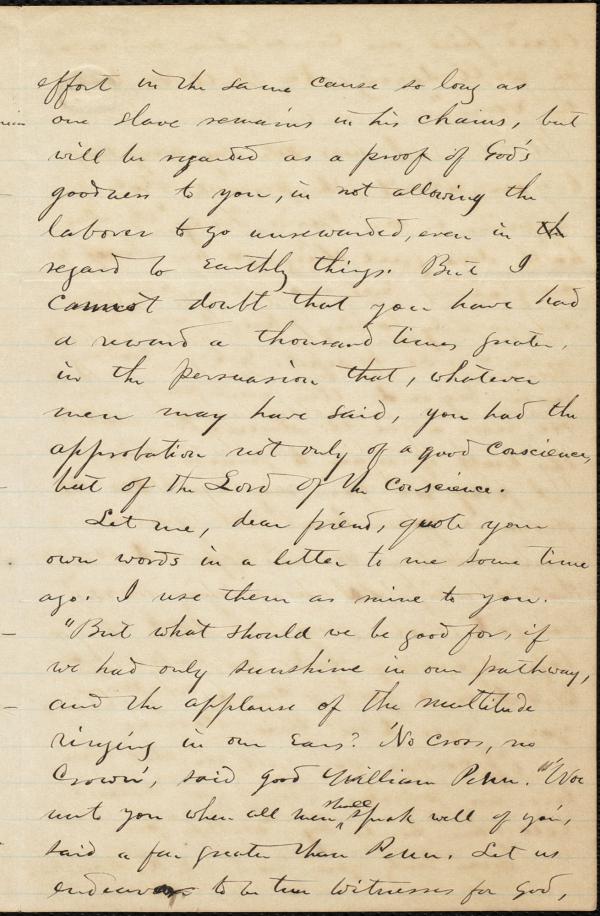 effort in the same cause so long as
one slave remains in his chains, but
will be regarded as a proof of God's
goodness to you, in not allowing the
laborer to go unrewarded, even in
regard to Earthly things. But I
cannot doubt that you have had
a reward a thousand times greater,
in the persuasion that, whatever
men may have said, you had the
approbation not only of a good conscience,
but of the Lord of the conscience.
Let me, dear friend, quote your
own words in a letter to me some time
ago. I use them as mine to you.
"But what should we be good for, if
we had only sunshine in our pathway,
and the applause of the multitude
ringing in our Ears? 'No cross, no
Crown', said good William Penn. "'Woe
unto you when all men shall speak well of you',
said a far greater than Penn. Let us
endeavor to be true witnesses for God,